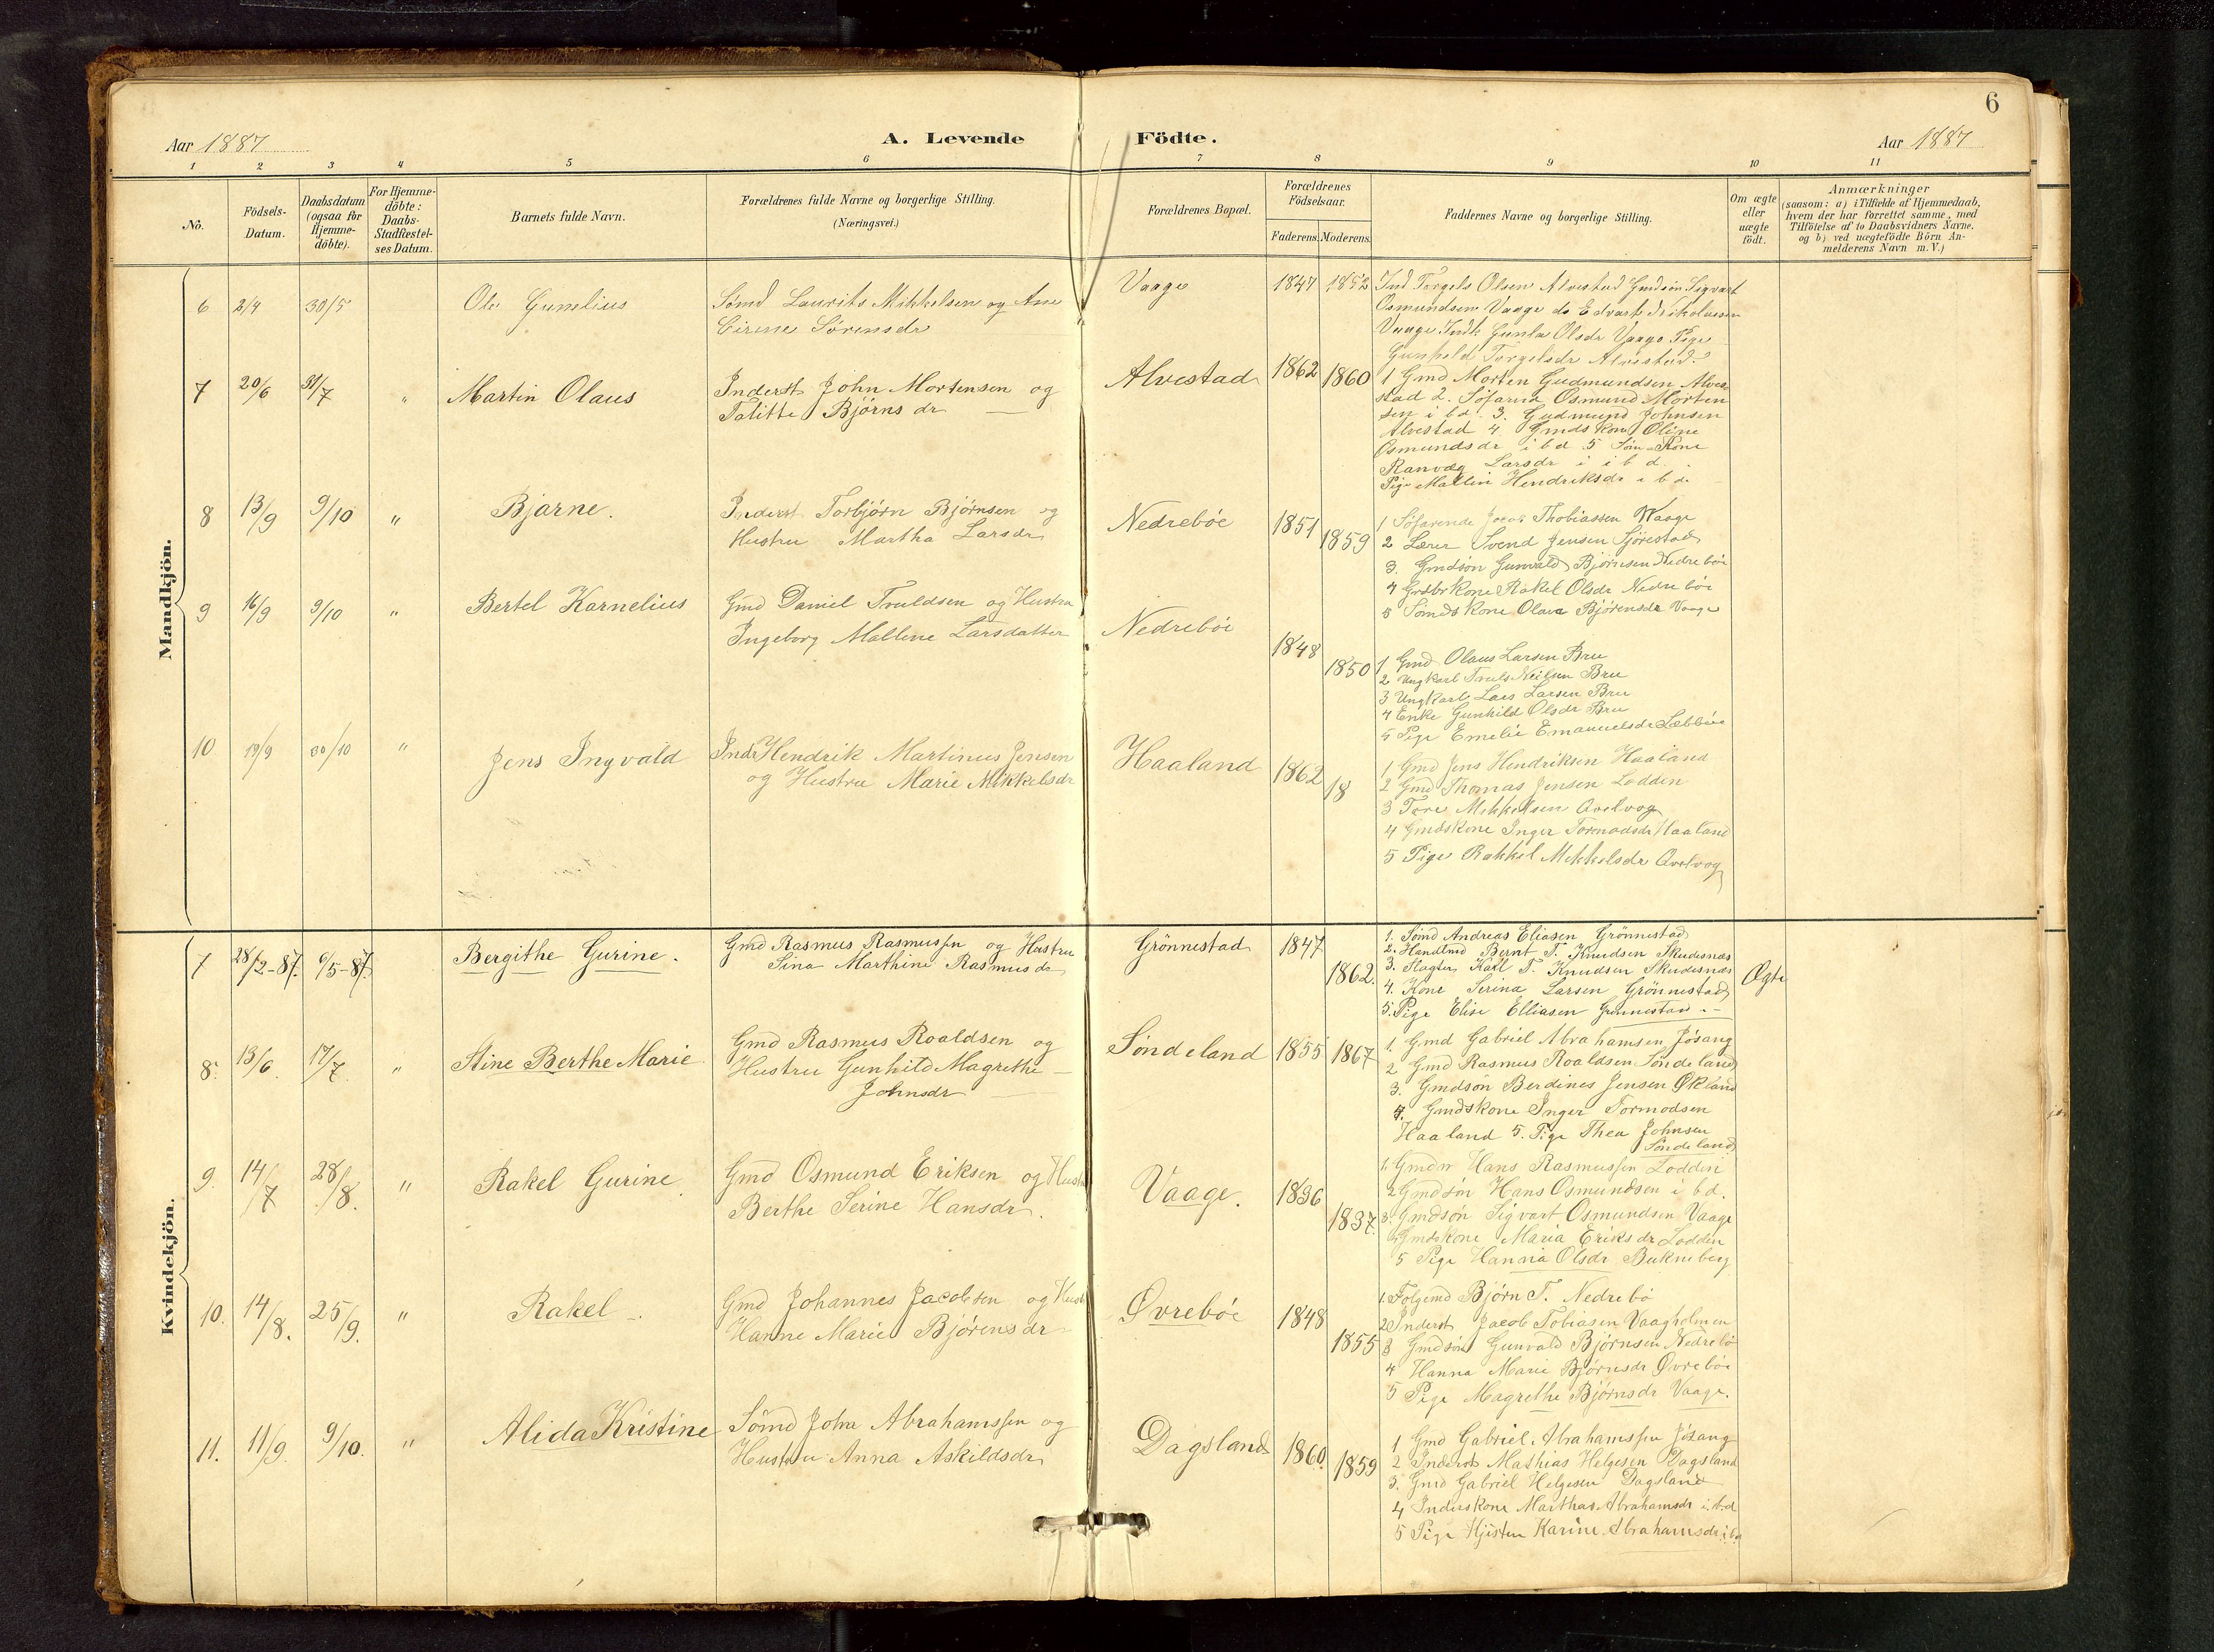 6
Aar 1887
A. Levende Födte.
Aar 1887
1 2 3 4 5 6 7 8 9 10 11
No.
Födsels-
Datum.
Daabsdatum
(ogsaa for
Hjemme-
döbte).
For Hjemme-
döbte:
Daabs-
Stadfæstel-
ses Datum.
Barnets fulde Navn.
Forældrenes fulde Navne og borgerlige Stilling.
(Næringsvei.)
Forældrenes Bopæl.
Forældrenes
Födselsaar.
Faderens. Moderens.
Faddernes Navne og borgerlige Stilling.
Om ægte
eller
uægte
födt.
Anmærkninger
(saasom: a) i Tilfælde af Hjemmedaab,
hvem der har forrettet samme, med
Tilföielse af to Daabsvidners Navne.
og b) ved uægtefödte Börn An-
melderens Navn m. V.)
Mandkjön.
6 2/4 30/5
Ole Gunelius
Sømd Laurits Mikkelsen og Ane
Sørensdr
Vaage
1847 1852
Ind Torgels Olsen Alvestad Gmdsøn Sigvart
Osmundsen Vaage do Edvart Nikolaisen
Vaage Olsdr Vaage Pige
Gunhild Torgelsdr Alvestad.
7 20/6 31/7 "
Martin Olaus
Inderst John Mortensen og
Talitte Bjørnsdr
Alvestad
1862 1860
1 Gmd Morten Gudmundsen Alve-
stad 2. Søfarnd Osmund Morten
sen i bd. 3. Gudmund Johnsen
Alvestad 4 Gmdskone Oline
Osmundsdr i bd 5 Søm Kone
Ranvæg Larsdr i i b d.
Pige Mallin Hendriksdr i b d.
8 13/9 9/10 "
Bjarne.
Inderst Torbjörn Björnsen og
Hustru Martha Larsdr
Nedrebøe
1851 1859
1 Söfarende Jacob Thobiassen Waage
2 Lærer Svend Jensen Sjørestad
3. Gmdsön Gunvald Björnsen Nedrebøe
4 Kone Rakel Olsdr Nedrebøe
5 Sømdskone Olava Bjørensdr Vaage
9 16/9 9/10 "
Bertel Karnelius
Gmd Daniel Truldsen og Hustru
Ingeborg Mallene Larsdatter
Nedrebøe
1848 1850
1 Gmd Olaus Larsen Bru
2 Ungkarl Truls Neilsen Bru
3 Ungkarl Lars Larsen Bru
4 Enke Gunhild Olsdr Bru
5 Pige Emelie Emanuelsdr
10 19/9 30/10 "
Jens Ingvald
Indr Hendrik Martinus Jensen
og Hustru Marie Mikkelsdr
Haaland
1862 18
1 Gmd Jens Hendriksen Haaland
2 Gmd Thomas Jensen Lodden
3 Tore Mikkelsen Qvelvog
4 Gmdskone Inger Tormodsdr Haaland
5 Pige Rakkel Mikkelsdr Qvelvog
Kvindekjön.
7 28/2-87. 6/5-87.
Bergithe Gurine.
Gmd Rasmus Rasmussen og Hustru
Sina Marthine Rasmusdr
Grönnestad
1847 1862.
1. Sömd Andreas Eliasen Grönnestad
2. Handlmd Bernt T. Knudsen Skudesnæs
3. Slagter Karl T. Knudsen Skudesnæs
4. Kone Serina Larsen Grönnestad
5. Pige Elise Elliasen Grønnestad
Ægte
8. 13/6. 17/7. "
Stine Berthe Marie
Gmd Rasmus Roaldsen og
Hustru Gunhild Magrethe
Johnsdr
Søndeland
1855 1867
1. Gmd Gabriel Abrahamsen Jösang
2 Gmd Rasmus Roaldsen Søndeland
3. Gmdsøn Berdines Jensen Økland
4. Gmdskone Inger Tormodsen
Haaland 5. Pige Thea Johnsen
Søndeland
9. 14/7 28/8. "
Rakel Gurine
Gmd Osmund Eriksen og Hustr
Berthe Serine Hansdr.
Vaage.
1836 1837.
1. Hans Rasmussen Lodden
2 Gmdsön Hans Osmundsen i bd.
3. Gmdsøn Sigvart Osmundsen Vaage
Gmdskone Maria Eriksdr Lodden
5 Pige Hanna Olsdr
10. 14/8. 25/9. "
Rakel
Gmd Johannes Jacobsen og Hust
Hanne Marie Bjørensdr
Øvrebøe
1848 1855
1. Folgemd Bjørn T. Nedrebø
2 Inderst Jacob Tobiasen Vaagholmen
3 Gmdsøn Gunvald Björnsen Nedrebö
4 Hanna Marie Bjørnsdr Øvrebøe
5 Pige Magrethe Bjørnsdr Vaage.
11. 11/9. 9/10. "
Alida Kristine
Sömd John Abrahamssen og
Hustru Anna Askildsdr
Dagsland
1860. 1859
1 Gmd Gabriel Abrahamssen Jösang
2 Inderst Mathias Helgesen Dagsland
3. Gmd Gabriel Helgesen Dagsland
4 Inderskone Marthas Abrahamsdr i bd
5 Pige Karine Abrahamsdr ibd